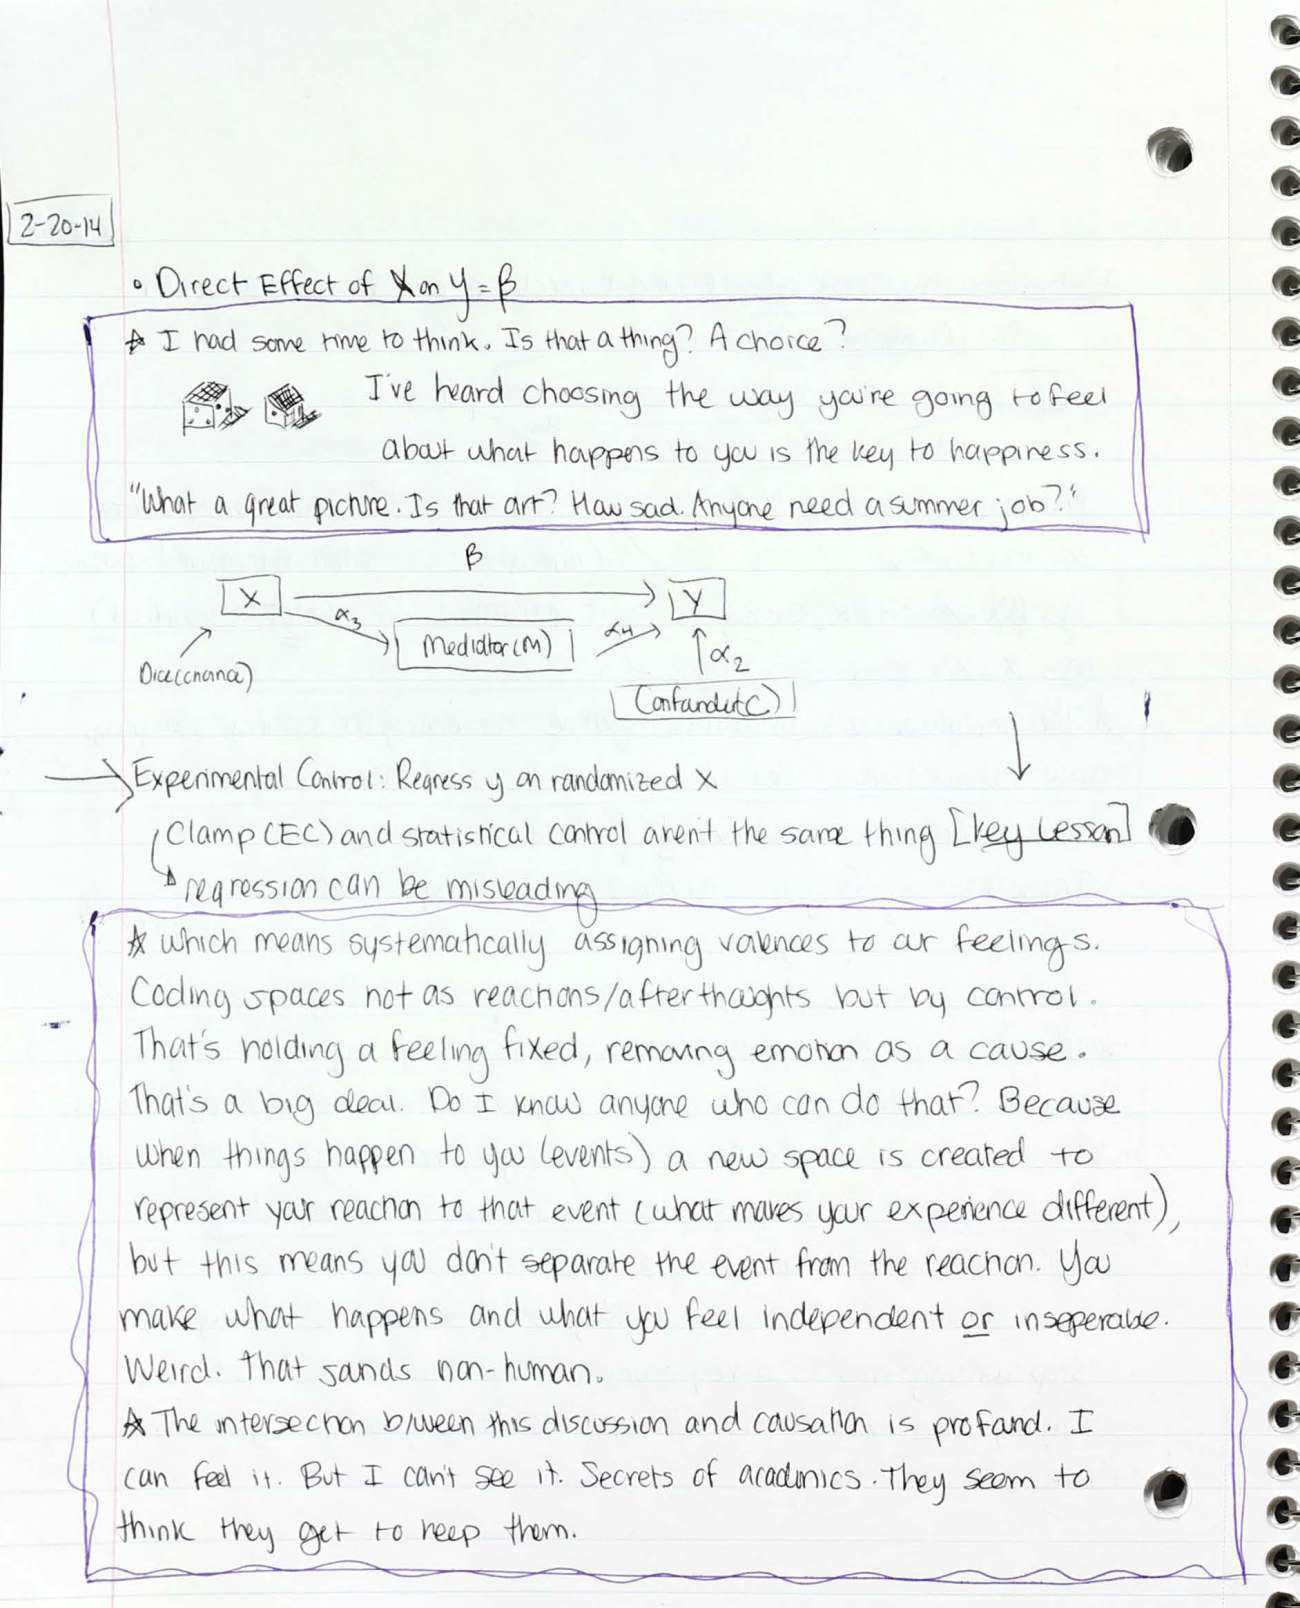 2-20-14
• Direct Effect of X on Y = β
☆ I had some time to think. Is that a thing? A choice?
I've heard choosing the way you're going to feel
about what happens to you is the key to happiness.
"What a great picture. Is that art? How sad. Anyone need a summer job?"
β
X
Y
α3
Mediator (M)
α4
α2
Dice (chance)
Confound (C)
→ Experimental Control: Regress y on randomized X
Clamp (EC) and statistical control aren't the same thing [key lesson]
regression can be misleading
☆ which means systematically assigning valences to our feelings.
Coding spaces not as reactions/afterthoughts but by control.
That's holding a feeling fixed, removing emotion as a cause.
That's a big deal. Do I know anyone who can do that? Because
when things happen to you (events) a new space is created to
represent your reaction to that event (what makes your experience different),
but this means you don't separate the event from the reaction. You
make what happens and what you feel independent or inseperable.
Weird. That sounds non-human.
☆ The intersection b/ween this discussion and causation is profound. I
can feel it. But I can't see it. Secrets of academics. They seem to
think they get to keep them.